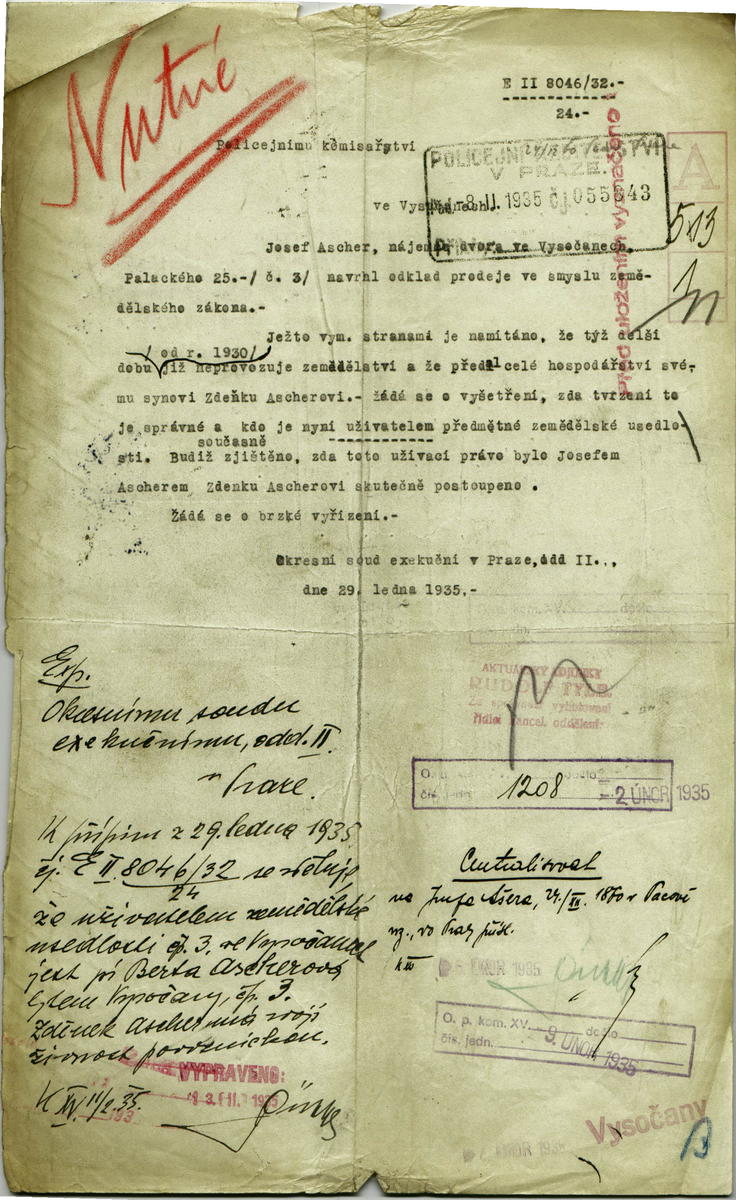 Nutné
E II 8046/32.-
24.-
Policejnímu kómisařství
POLICEJNÍ
V PRAZE.
-8.II.1935 čj 055643
ve Vysočanech.
A
513
1
Před uložením vyznačeno
Josef Ascher, nájemce dvora ve Vysočanech,
Palackého 25.-/ č. 3/ navrhl odklad prodeje ve smyslu země-
dělského zákona.-
Ježto vym. stranami je namítáno, že týž delší
/ od r. 1930/
dobu již neprovozuje zemědělství a že předal celé hospodářství své-
mu synovi Zdeňku Ascherovi.- žádá se o vyšetření, zda tvrzení to
je správné a kdo je nyní uživatelem předmětné zemědělské usedlo-
současně
sti. Budiž zjištěno, zda toto užívací právo bylo Josefem
Ascherem Zdenku Ascherovi skutečně postoupeno .
Žádá se o brzké vyřízení.-
Okresní soud exekuční v Praze, odd II..,
dne 29. ledna 1935.-
Exp.
Okresnímu soudu
exekučnímu, odd. II
v Praze.
AKTUÁRSKY ADJUNKT
RUDOLF
řídící kancel. oddělení.
čís. jedn. 1208 - 2 ÚNOR 1935
K přípisu z 29. ledna 1935
čj. E II. 8046/32 se sděluje,
24
že uživatelem zemědělské
usedlosti čp. 3. ve Vysočanech
jest pí Berta Ascherová,
bytem Vysočany, čp. 3.
Zdeněk Ascher má svoji
živnost povoznickou.
K XV 11/2. 35.
VYPRAVENO:
Centralisovat
na Josefa Ašera, 1870 v Pacově
ÚNOR 1935
O. p. kom. XV. došlo
čís. jedn. 9. ÚNOR 1935
Vysočany
ÚNOR 1935